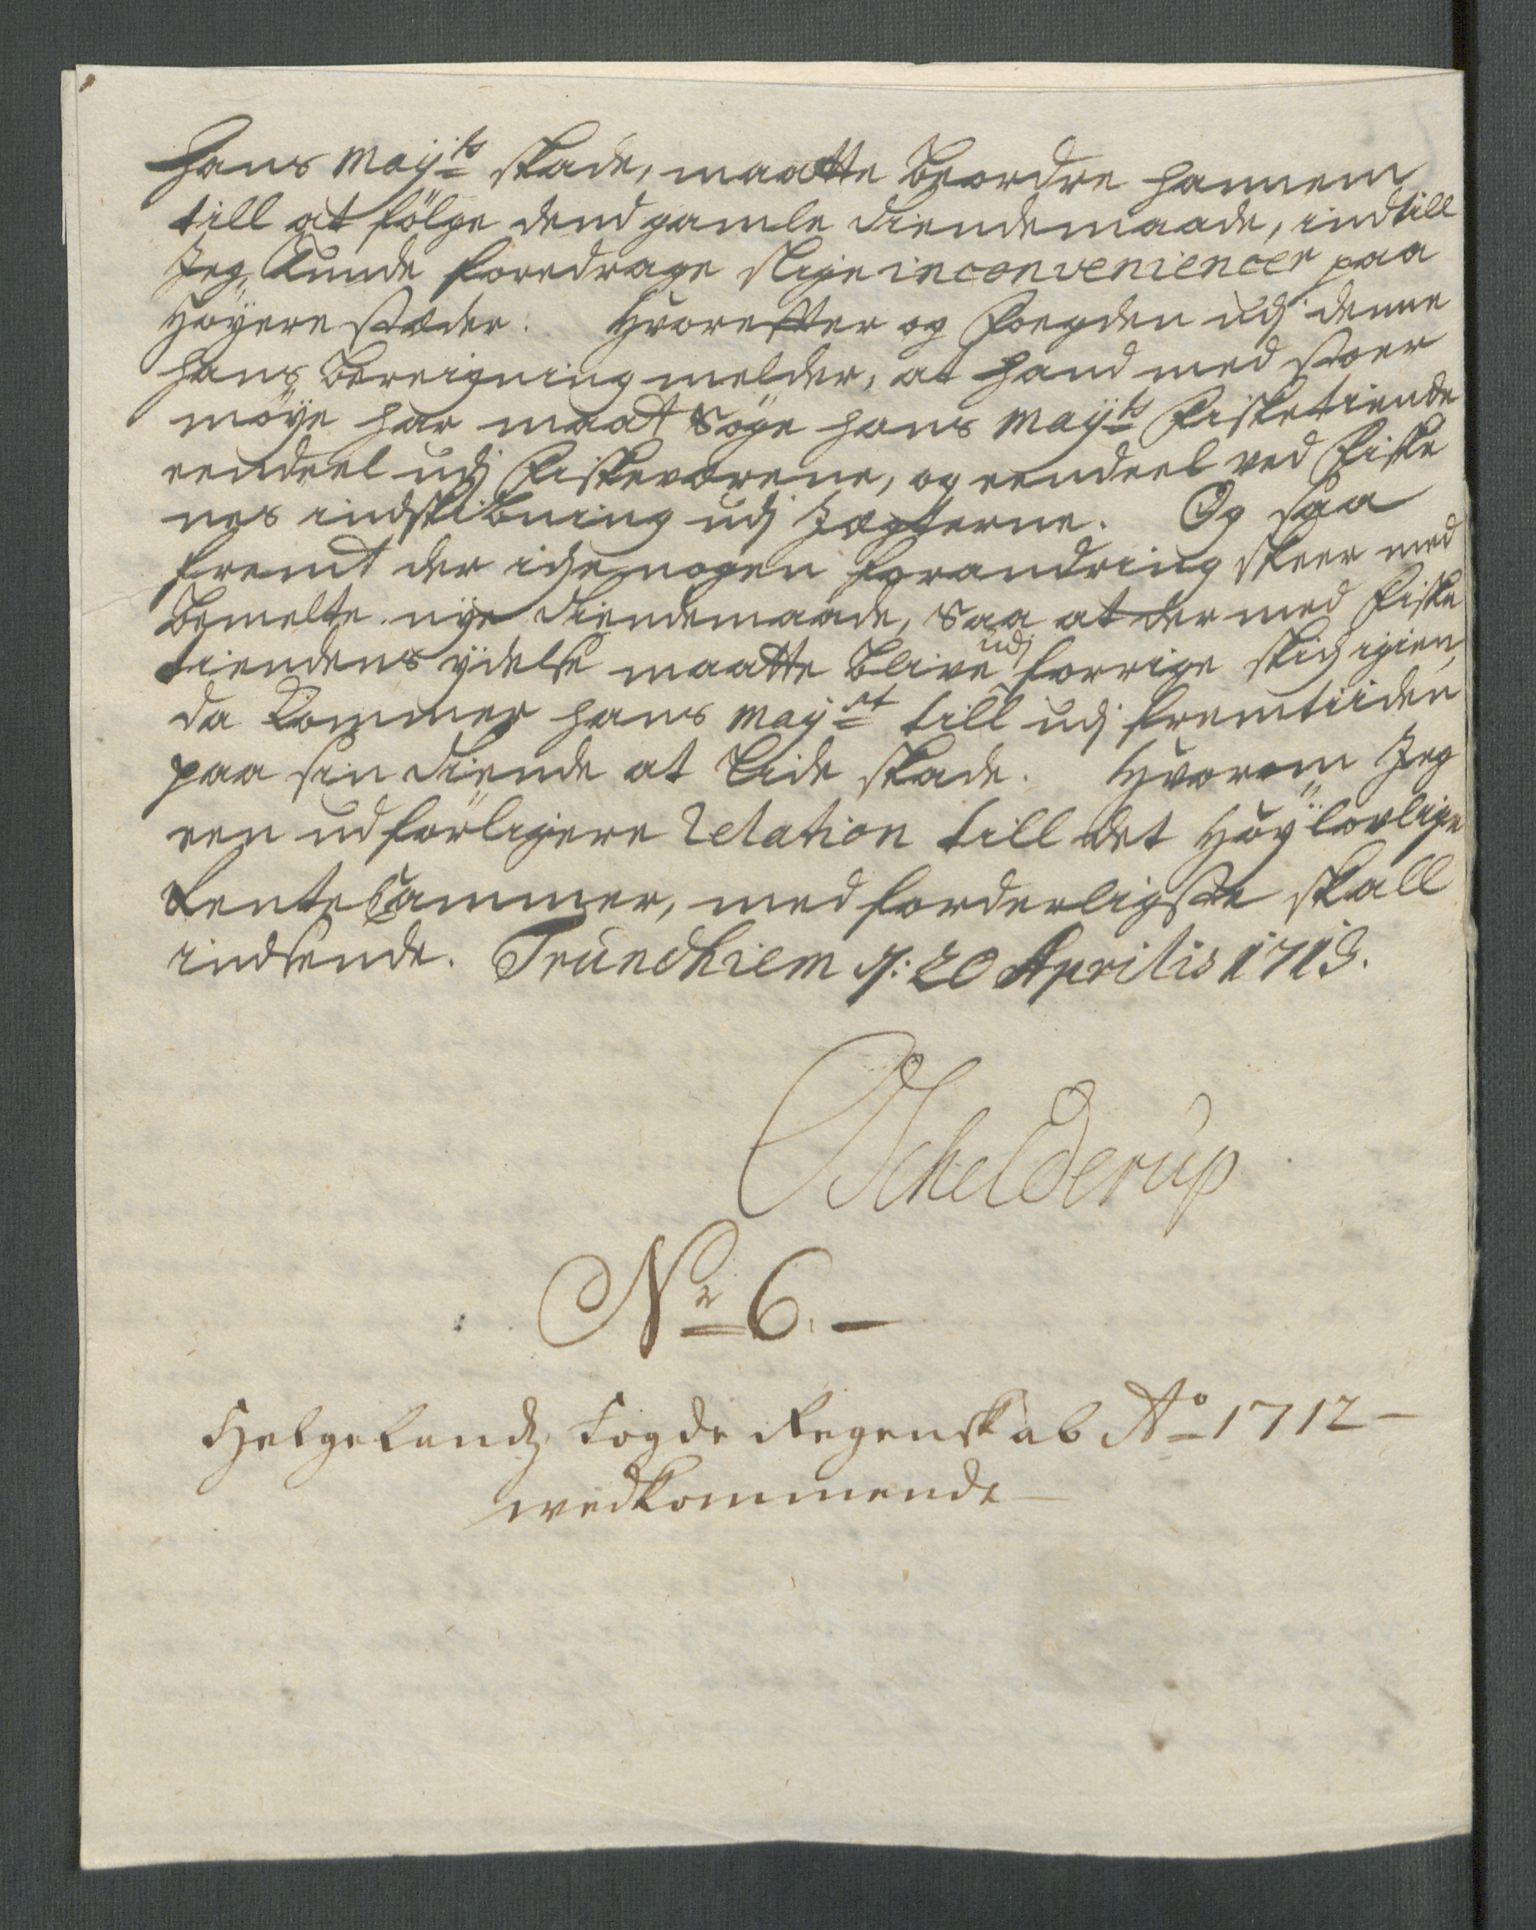 Hans Maÿ:ts skade, maatte beordre hannem
till at fölge dend gamle tiendemaade, indtill
Jeg kunde foredrage slige inconveniencer paa
Höyere stæder. Hvorefter og Foegden udj denne
hans beregning melder, at hand med stoer
möye har maat söge hans Maÿ:ts Fisketiende
eendeel udj Fiskeværene, og eendeel ved Fiske
nes indskibning udj Jægterne. Og saa
fremt der iche nogen forandring skeer med
bemelte nye tiendemaade, saa at der med Fiske
tiendens ydelse maatte blive udj forrige skich igien,
da kommer hans Maÿ:et till udj fremtiiden
paa sin tiende at lide skade. Hvorom Jeg
een udförligere Relation till det Höÿlovlige
Rentecammer, med forderligste skall
indsende. Trundhiem d: 20 Aprilis 1713.
Schelderup
Nr 6. –
Helgelands Fogde Regenskab Ao 1712 –
wedkommende